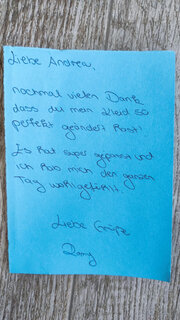 Liebe Andrea,
nochmal vielen Dank,
dass du mein Kleid so
perfekt geändert hast!
Es hat super gepasst und
ich hab mich den ganzen
Tag wohlgefühlt.
Liebe Grüße